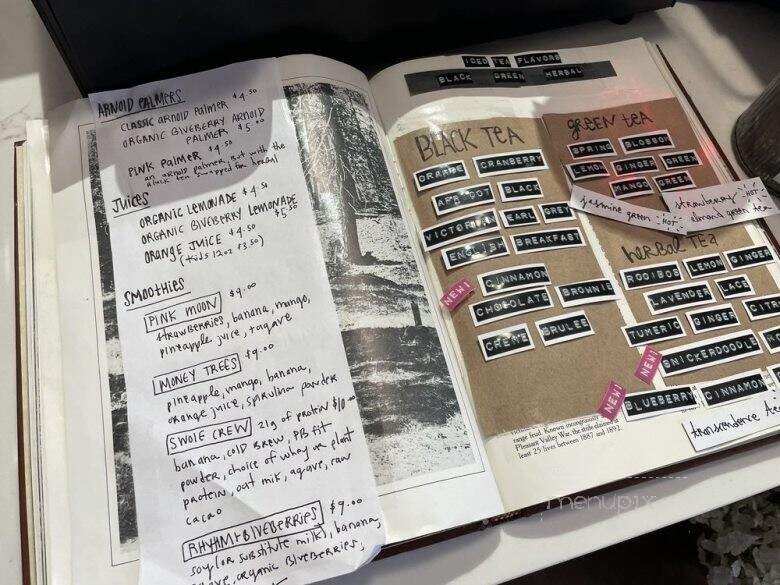 ARNOLD PALMERS
CLASSIC ARNOLD PALMER $4.50
ORGANIC BLUEBERRY ARNOLD
PALMER $5.00
PINK PALMER $4.50
an arnold palmer, but with the
black tea swapped for herbal
JUICES
ORGANIC LEMONADE $4.50
ORGANIC BLUEBERRY LEMONADE
$5.50
ORANGE JUICE $4.50
(kids 12oz $3.50)
SMOOTHIES
PINK MOON $9.00
strawberries, banana, mango,
pineapple juice, + agave
MONEY TREES $9.00
pineapple, mango, banana,
orange juice, spirulina powder
SWOLE CREW 21g of protein $10.00
banana, cold brew, PB fit
powder, choice of whey or plant
protein, oat milk, agave, raw
cacao
RHYTHM + BLUEBERRIES $9.00
soy (or substitute milk), banana,
organic blueberries,
ICED TEA FLAVORS
BLACK GREEN HERBAL
BLACK TEA
ORANGE CRANBERRY
APRICOT BLACK
VICTORIAN EARL GREY
ENGLISH BREAKFAST
CINNAMON
NEW! CHOCOLATE BROWNIE
CREME BRULEE
GREEN TEA
SPRING BLOSSOM
LEMON GINGER GREEN
MANGO GREEN
jasmine green HOT
strawberry HOT
almond green tea
HERBAL TEA
ROOIBOS LEMON GINGER
LAVENDER LACE
TUMERIC GINGER
NEW! SNICKERDOODLE
NEW! BLUEBERRY CINNAMON
transcendence
range feud. Known incongruously
Pleasant Valley War, the strife claimed at
least 25 lives between 1887 and 1892.
menupix